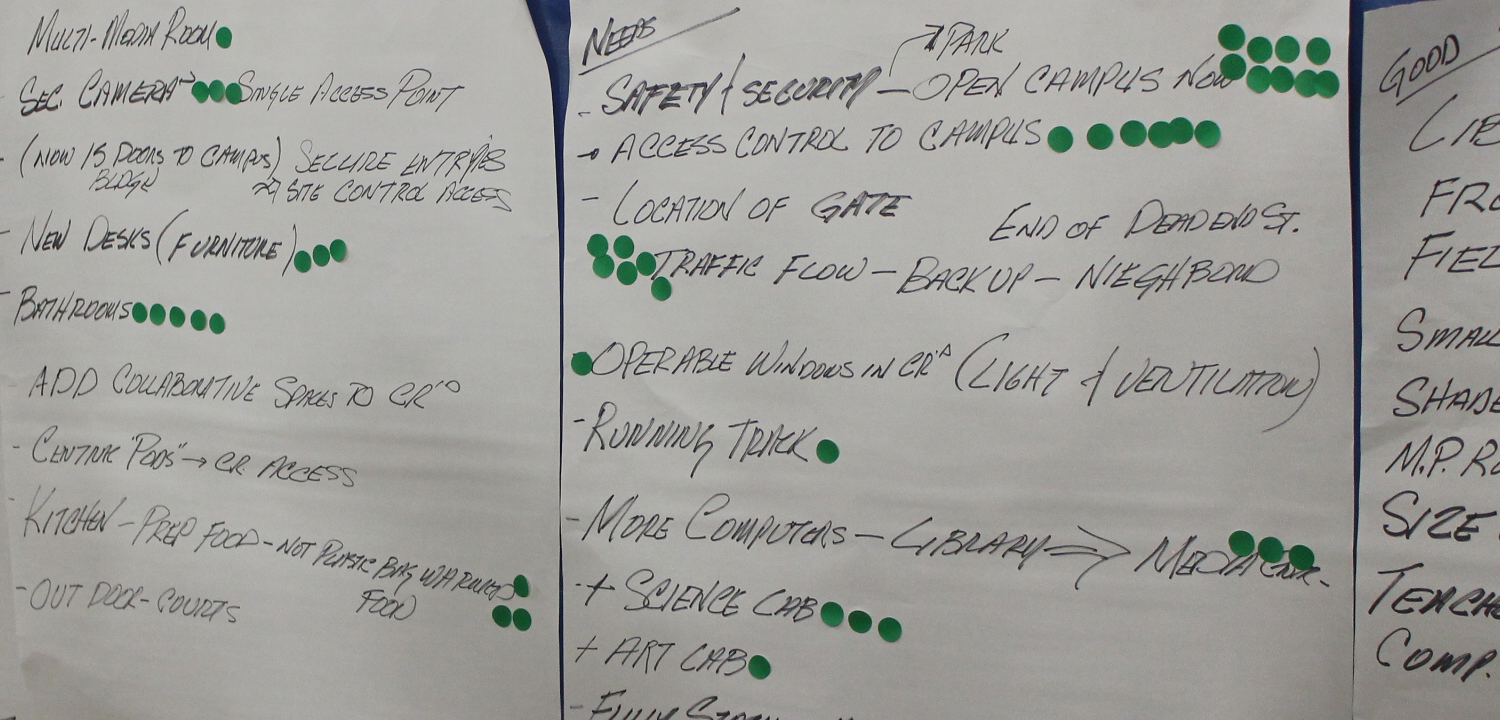 MULTI-MEDIA ROOM
SEC. CAMERAS SINGLE ACCESS POINT
- (NOW 15 DOORS TO CAMPUS) SECURE ENTRYIES
BLDGN → SITE CONTROL ACCESS
- NEW DESKS (FURNITURE)
- BATHROOMS
ADD COLLABORATIVE SPACES TO CR'S
- CENTRIC "PODS" → CR ACCESS
- KITCHEN - PREP FOOD - NOT PLASTIC BAG WARMED
FOOD
- OUT DOOR - COURTS
NEEDS
PARK
- SAFETY & SECURITY - OPEN CAMPUS NOW
→ ACCESS CONTROL TO CAMPUS
- LOCATION OF GATE
END OF DEAD END ST.
TRAFFIC FLOW - BACK UP - NIEGHBOND
OPERABLE WINDOWS IN CR'S (LIGHT & VENTILATION)
- RUNNING TRACK
- MORE COMPUTERS - LIBRARY ⇒ MEDIA CNTR-
- + SCIENCE LAB
+ ART LAB
- FULLY
GOOD
LIB
FRO
FIEL
SMALL
SHADE
M.P. RO
SIZE
TEACHE
COMP.